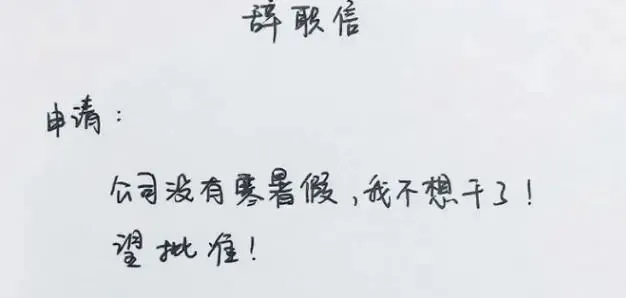 辞职信
申请：
公司没有寒暑假，我不想干了！
望批准！